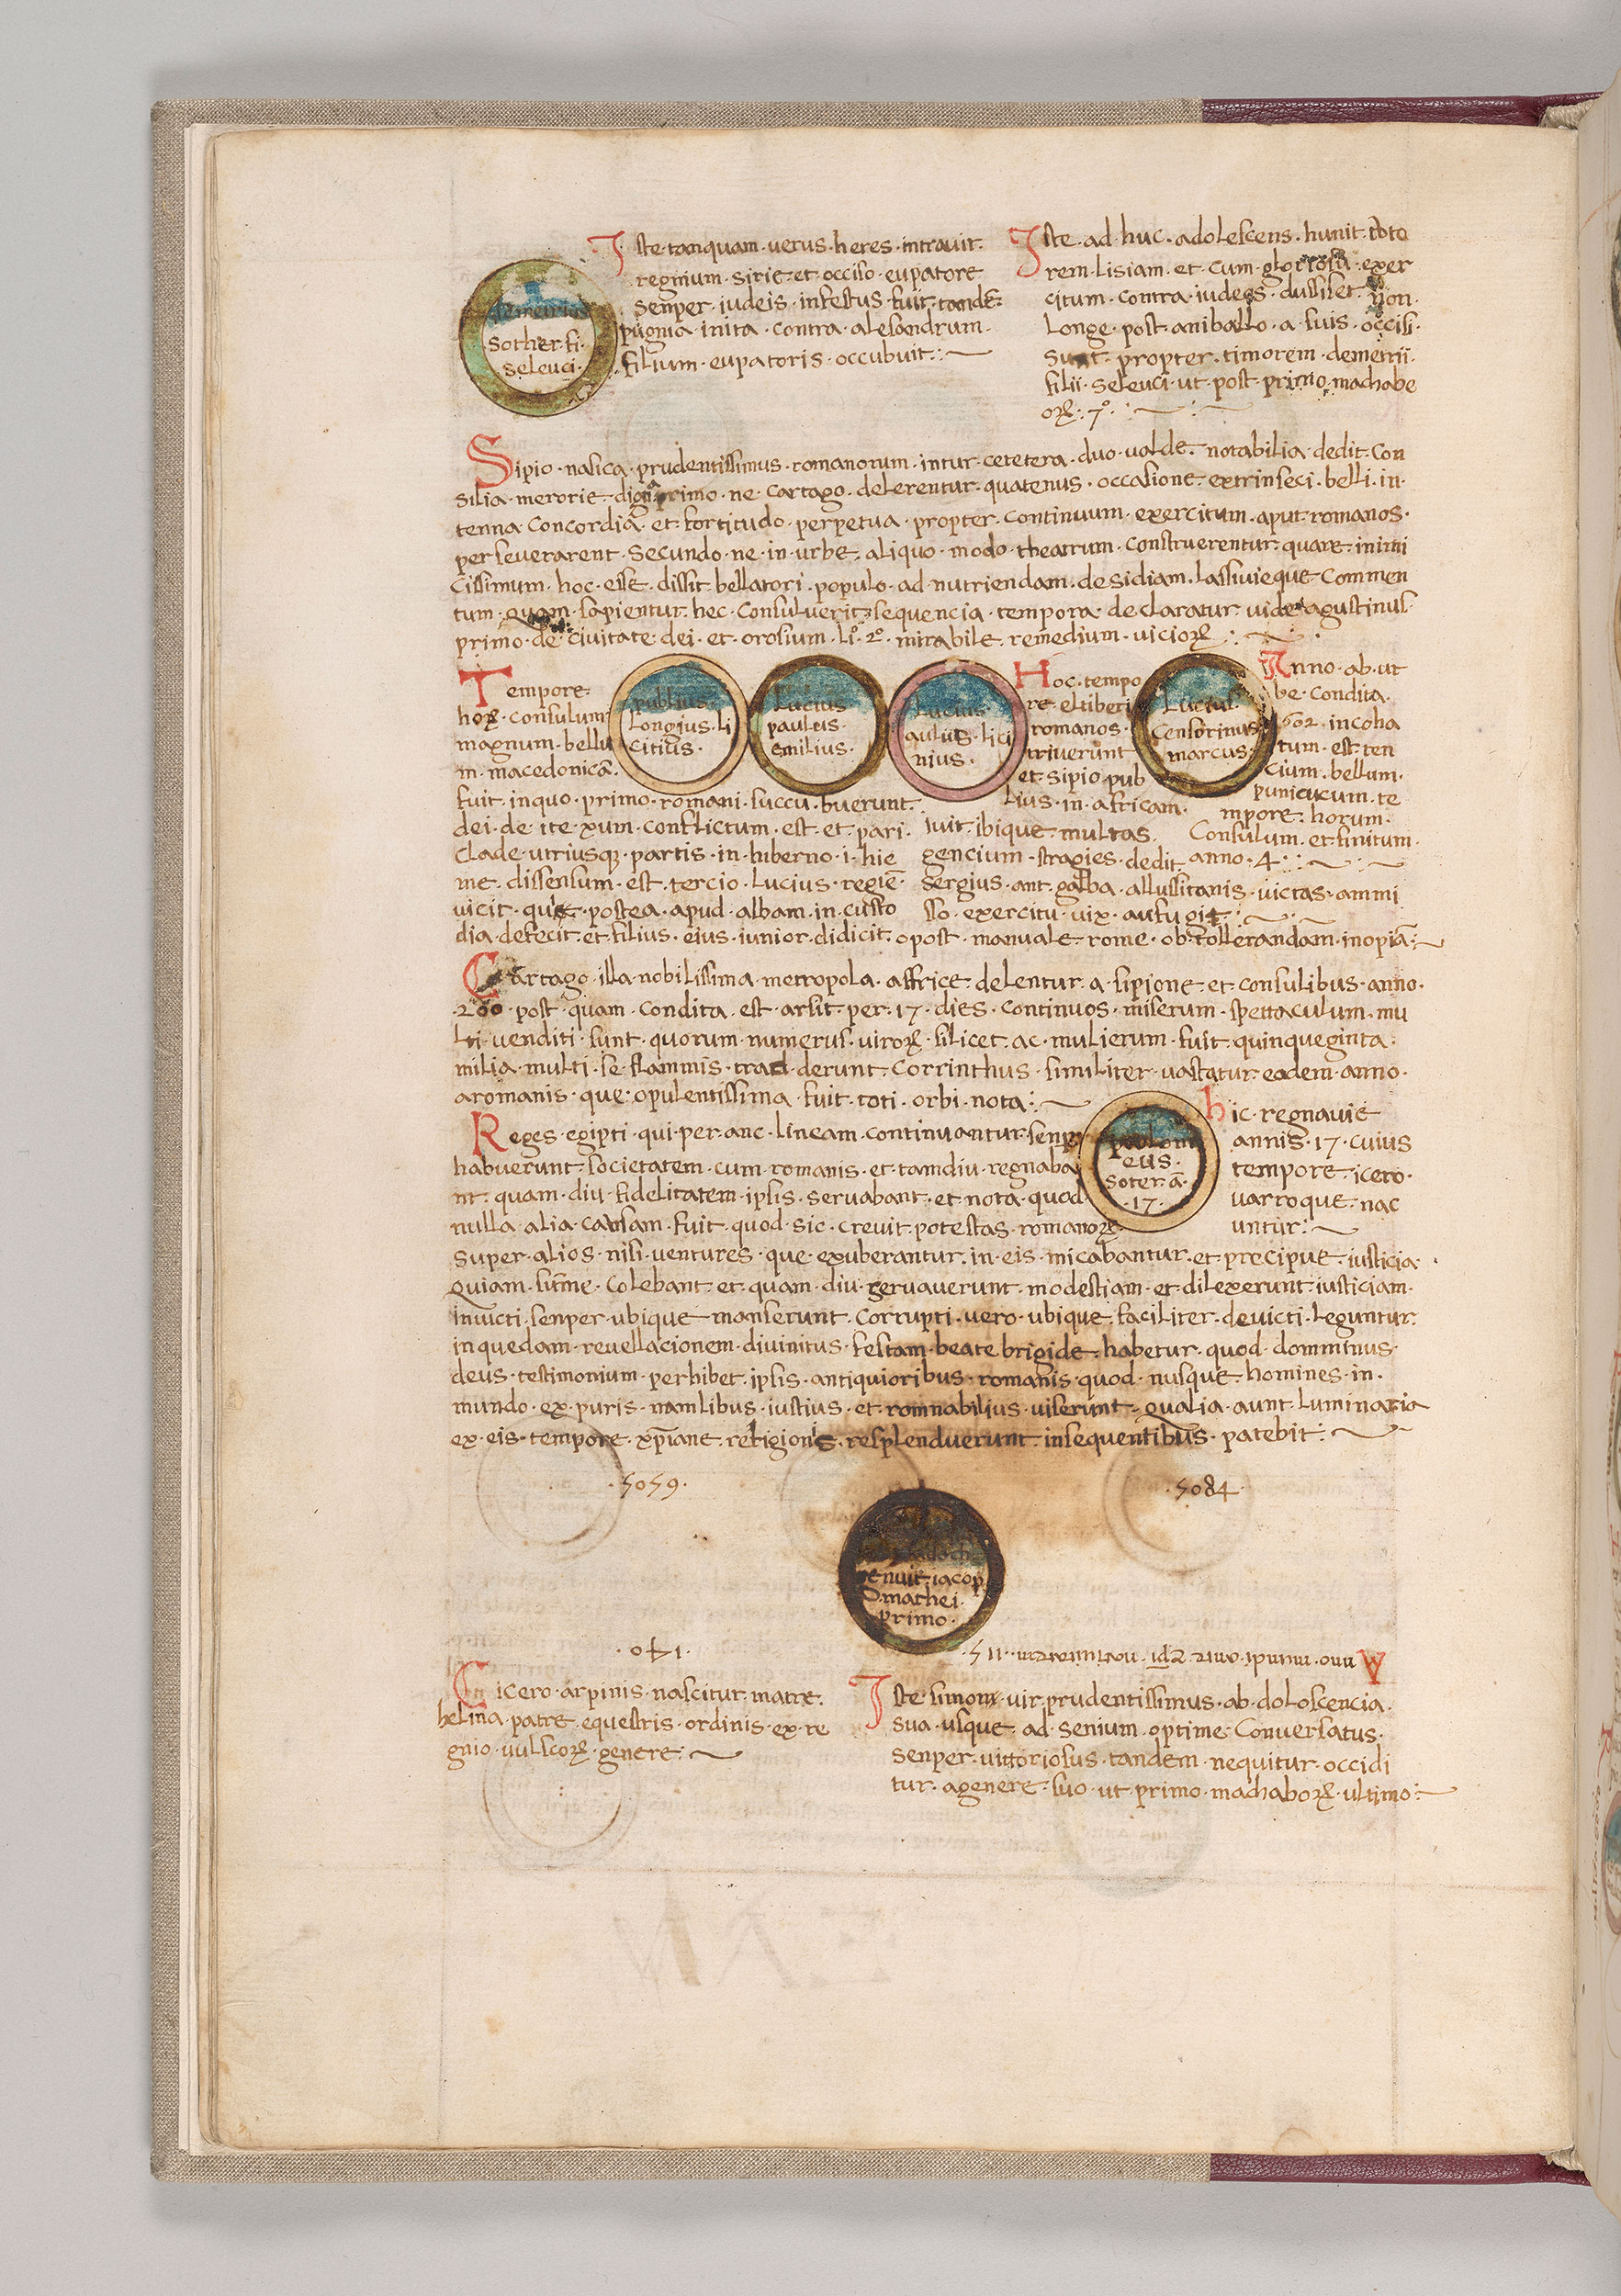 Iste·tanquam·uerus·heres·intrauit·
regnum·sirie·et·occiso·eupatore
senper·iudeis·infestus·fuit·tandē·
pugnia·inita·contra·alesandrum·
filium·eupatoris·occubuit:~
demetrius
sother·fi·
seleuci·
Iste·ad·huc·adolescens·hunit·
rem·lisiam·et·cum·gloriosu·exer
citum·contra·iudeos·dussit·et·non·
longe·post·aniballo·a·suis·occisi·
sunt·propter·timorem·demetrii·
filii·seleuci·ut·post·primo·machabe
orꝝ·7°·:~
Sipio·nasica·prudentissimus·romanorum·intur·cetetera·duo·ualde·notabilia·dedit·con
silia·merorie·digna·primo·ne·cartago·delerentur·quatenus·occasione·extrinseci·belli·in·
tenna·concordia·et·fortitudo·perpetua·propter·continuum·exercitum·aput·romanos·
perseverarent·secundo·ne·in·urbe·aliquo·modo·theatrum·construerentur·quare·inimi
cissimum·hoc·esse·dissit·bellatori·populo·ad·nutriendam·desidiam·lassiuieque·commen
tum·quam·sapientur·hec·consulverit·sequencia·tempora·declaratur·uide·agustinus·
primo·de·ciuitate·dei·et·orosium·li°·2°·mirabile·remedium·uiciorꝝ:~
Tempore·
horꝝ·consulum
magnum·bellu
m·macedonicā·
fuit·inquo·primo·romani·succu·buerunt·
dei·de·ite·xum·conflictum·est·et·pari·
clade·utriusqꝫ·partis·in·hiberno·i·hie
me·dissensum·est·tercio·lucius·regiē·
uicit·que·postea·apud·albam·in·custo
dia·defecit·et·filius·eius·iunior·didicit·opost·manuale·rome·ob·tollerandam·inopiā:~
publius·
longius·li
citius·
Lucius
paulus·
emilius·
Lucius
aulus·lici
nius·
Hoc·tempo
re·eltiberi
romanos·
triuerunt
et·sipio·pub
lius·in·africam·
iuit·ibique·multas·
gencium·strages·dedit
sergius·ant·galba·allussitanis·victas·ammi
sso·exercitu·uix·aufugit:~
Lucius·
censorinus
marcus·
Anno·ab·ut
be·condita·
602·incoha
tum·est·ten
cium·bellum·
punicucum·te
mpore·horum·
consulum·et·finitum·
anno·4·:~
Cartago·illa·nobilissima·metropola·affrice·delentur·a·sipione·et·consulibus·anno·
·200·post·quam·condita·est·arsit·per·17·dies·continuos·miserum·spettaculum·mu
lti·venditi·sunt·quorum·numerus·uirorꝝ·silicet·ac·mulierum·fuit·quinqueginta·
milia·multi·se·flammis·trad·derunt·corrinthus·similiter·uastatur·eadem·anno·
aromanis·que·opulentissima·fuit·toti·orbi·nota:~
Reges·egipti·qui·per·anc·lineam·continuantur·senper
habuerunt·societatem·cum·romanis·et·tamdiu·regnaba
nt·quam·diu·fidelitatem·ipsis·servabant·et·nota·quod
nulla·alia·causam·fuit·quod·sic·crevit·potestas·romanorꝝ·
ptolom
eus·
soter·ā·
·17·
hic·regnauit
annis·17·cuius
tempore·icero·
uarroque·nac
untur:~
super·alios·nisi·ventures·que·exuberantur·in·eis·micabantur·et·precipue·iusticia·
quiam·sūme·colebant·et·quam·diu·servaverunt·modestiam·et·dilexerunt·iusticiam·
invicti·senper·ubique·manserunt·corrupti·vero·ubique·faciliter·devicti·leguntur·
inquedam·reuellacionem·divinitus·festam·beate·brigide·habetur·quod·domminus·
deus·testimonium·perhibet·ipsis·antiquioribus·romanis·quod·nusque·homines·in·
mundo·ex·puris·namlibus·iustius·et·romnabilius·uiserunt·qualia·aunt·luminaria
ex·eis·tempore·xp̄iane·religionis·resplenduerunt·insequentibus·patebit:~
·5059·
·5084·
genuit·iacop
S·mathei·
primo·
·041·
Anno·mundi·ante·xp̄i·natiuitatem·115·
Cicero·arpinis·nascitur·matre·
helina·patre·equestris·ordinis·ex·re
gnio·vulscorꝝ·genere:~
Iste·simom·uir·prudentissimus·ab·doloscencia·
sua·usque·ad·senium·optime·conuersatus·
senper·uittoriosus·tandem·nequitur·occidi
tur·agenere·suo·ut·primo·machaborꝝ·ultimo:~